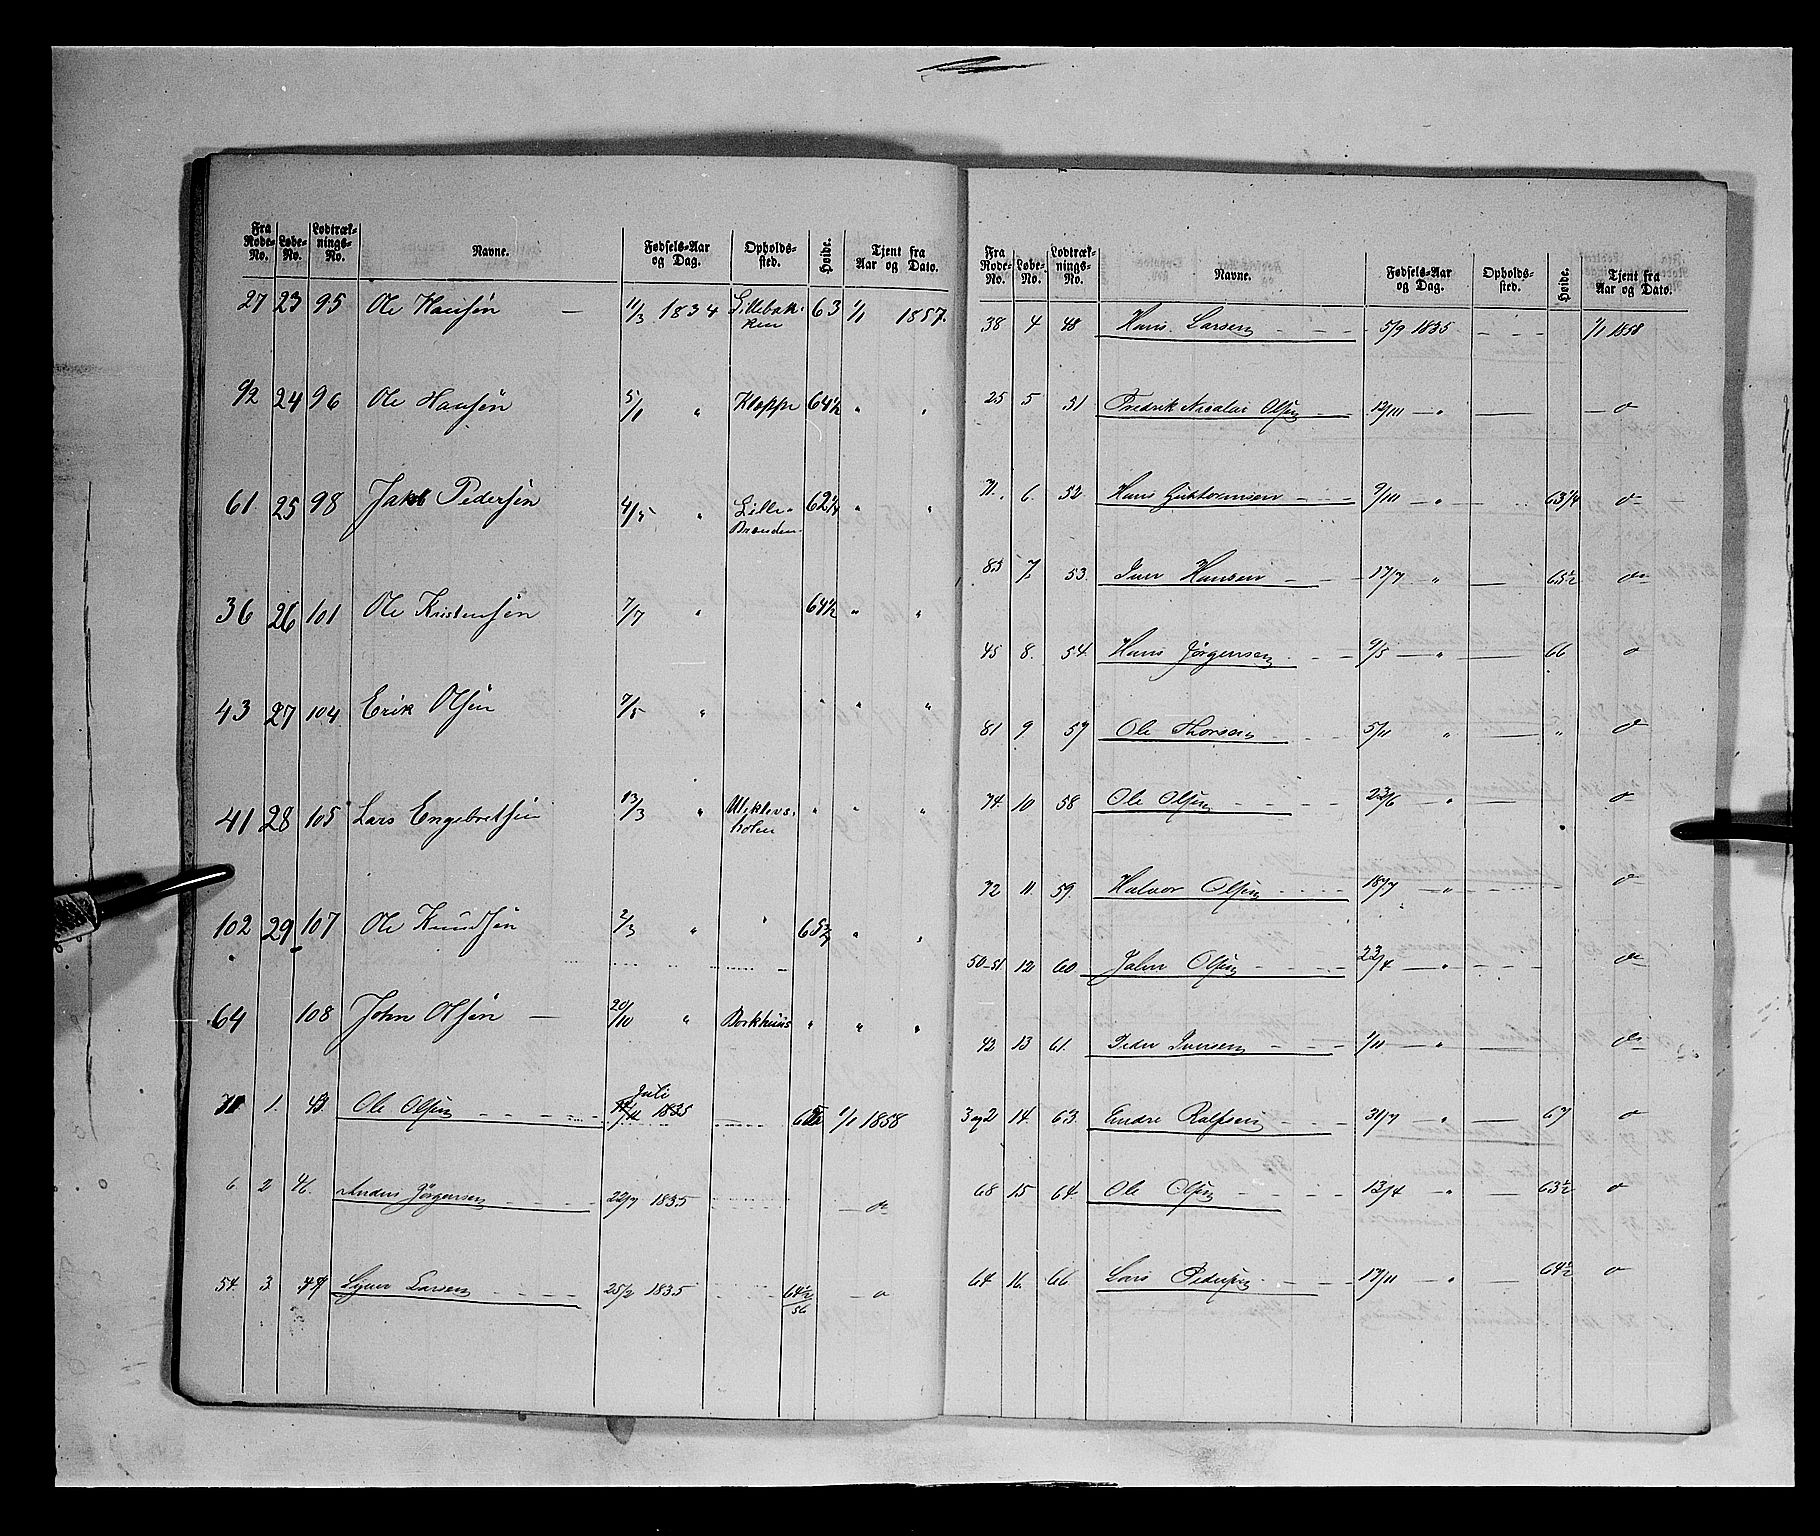 Fra Rode-No. Løbe-No. Lodtræk-nings-No. Navne. Fødsels-Aar og Dag. Opholds-sted. Høide. Tjent fra Aar og Dato.
27 23 95 Ole Hansen — 11/3 1834 Lillebak- 63 1/1 1857.
ken
92 24 96 Ole Hansen 5/1 " Kloppe 64½ " "
61 25 98 Jakob Pedersen 4/5 " Lille- 62¼ " "
Brenden
36 26 101 Ole Kristensen 7/7 " 64½ " "
43 27 104 Erik Olsen 7/5 " " " "
41 28 105 Lars Engebretsen 13/3 " " " "
holen
102 29 107 Ole Knudsen 2/3 " " 65½ " "
64 108 John Olsen — 20/10 " Borkhuus " " "
Juli
31 1. 43 Ole Olsen 1835 1/1 1858
6 2 46. Anders Jørgensen 22/7 1835 — do
54. 3 47 Larsen 25/2 1835 64½ — o
56
Fra Rode-No. Løbe-No. Lodtræk-nings-No. Navne. Fødsels-Aar og Dag. Opholds-sted. Høide. Tjent fra Aar og Dato.
38 4 48 Hans Larsen 5/9 1835 1/1 1858
25 5 51 Fredrik Nicolai Olsen 12/11 — " — — o
71. 6. 52 Hans Guttormsen 9/11 — " 63¼ o
85 7 53. Iver Hansen 17/7 " — 65½ do
45 8. 54. Hans Jørgensen 9/5 — " — 66 o
81 9 57 Ole Thorsen 5/11 " — " o
74. 10 58 Ole Olsen 23/6 " — o
72 11 59. Halvor Olsen 18/7 — " o
50-51 12 60. John Olsen 23/4 — " do
42 13 61. Peder Iversen 1/11 — " — do
3 og 2 14. 63. Endre Rolfsen 31/7 — " — 67 o
68 15 64. Ole Olsen 13/4 — " — 63½ o
64 16. 66 Lars Pedersen 17/11 — " — 64½ o